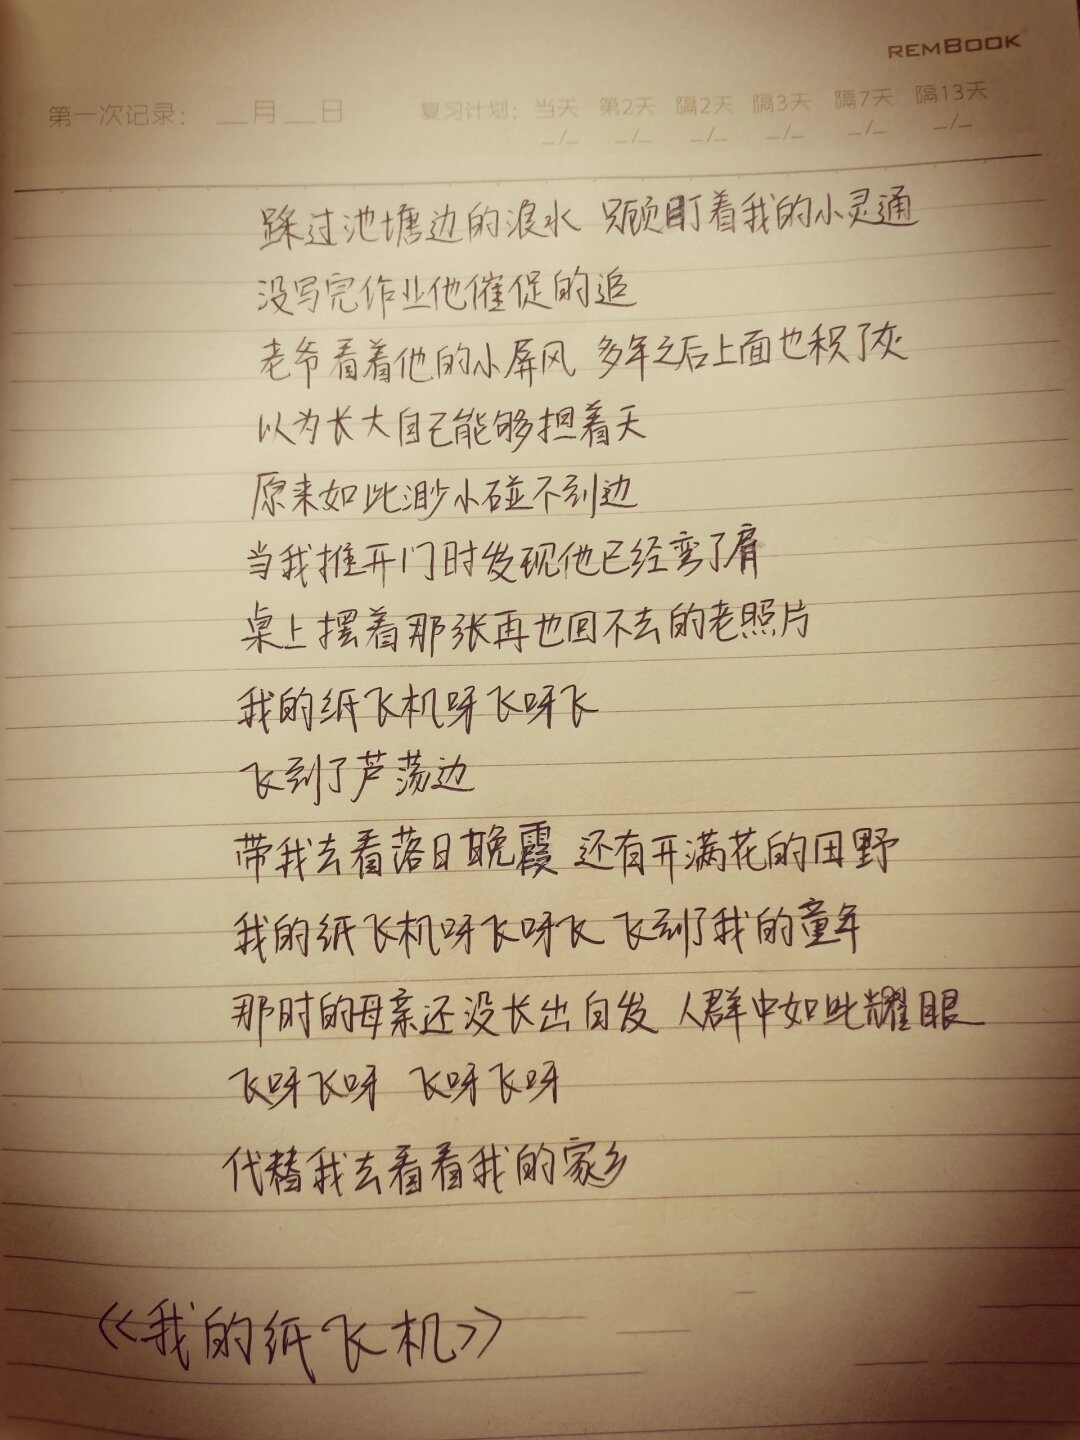 REMBOOK
第一次记录: __月__日 复习计划: 当天 第2天 隔2天 隔3天 隔7天 隔13天
_/_ _/_ _/_ _/_ _/_ _/_
踩过池塘边的浪水 只顾盯着我的小灵通
没写完作业他催促的追
老爷看着他的小屏风 多年之后上面也积了灰
以为长大自己能够担着天
原来如此渺小碰不到边
当我推开门时发现他已经弯了肩
桌上摆着那张再也回不去的老照片
我的纸飞机呀飞呀飞
飞到了芦荡边
带我去看落日晚霞 还有开满花的田野
我的纸飞机呀飞呀飞 飞到了我的童年
那时的母亲还没长出白发 人群中如此耀眼
飞呀飞呀 飞呀飞呀
代替我去看看我的家乡
《我的纸飞机》